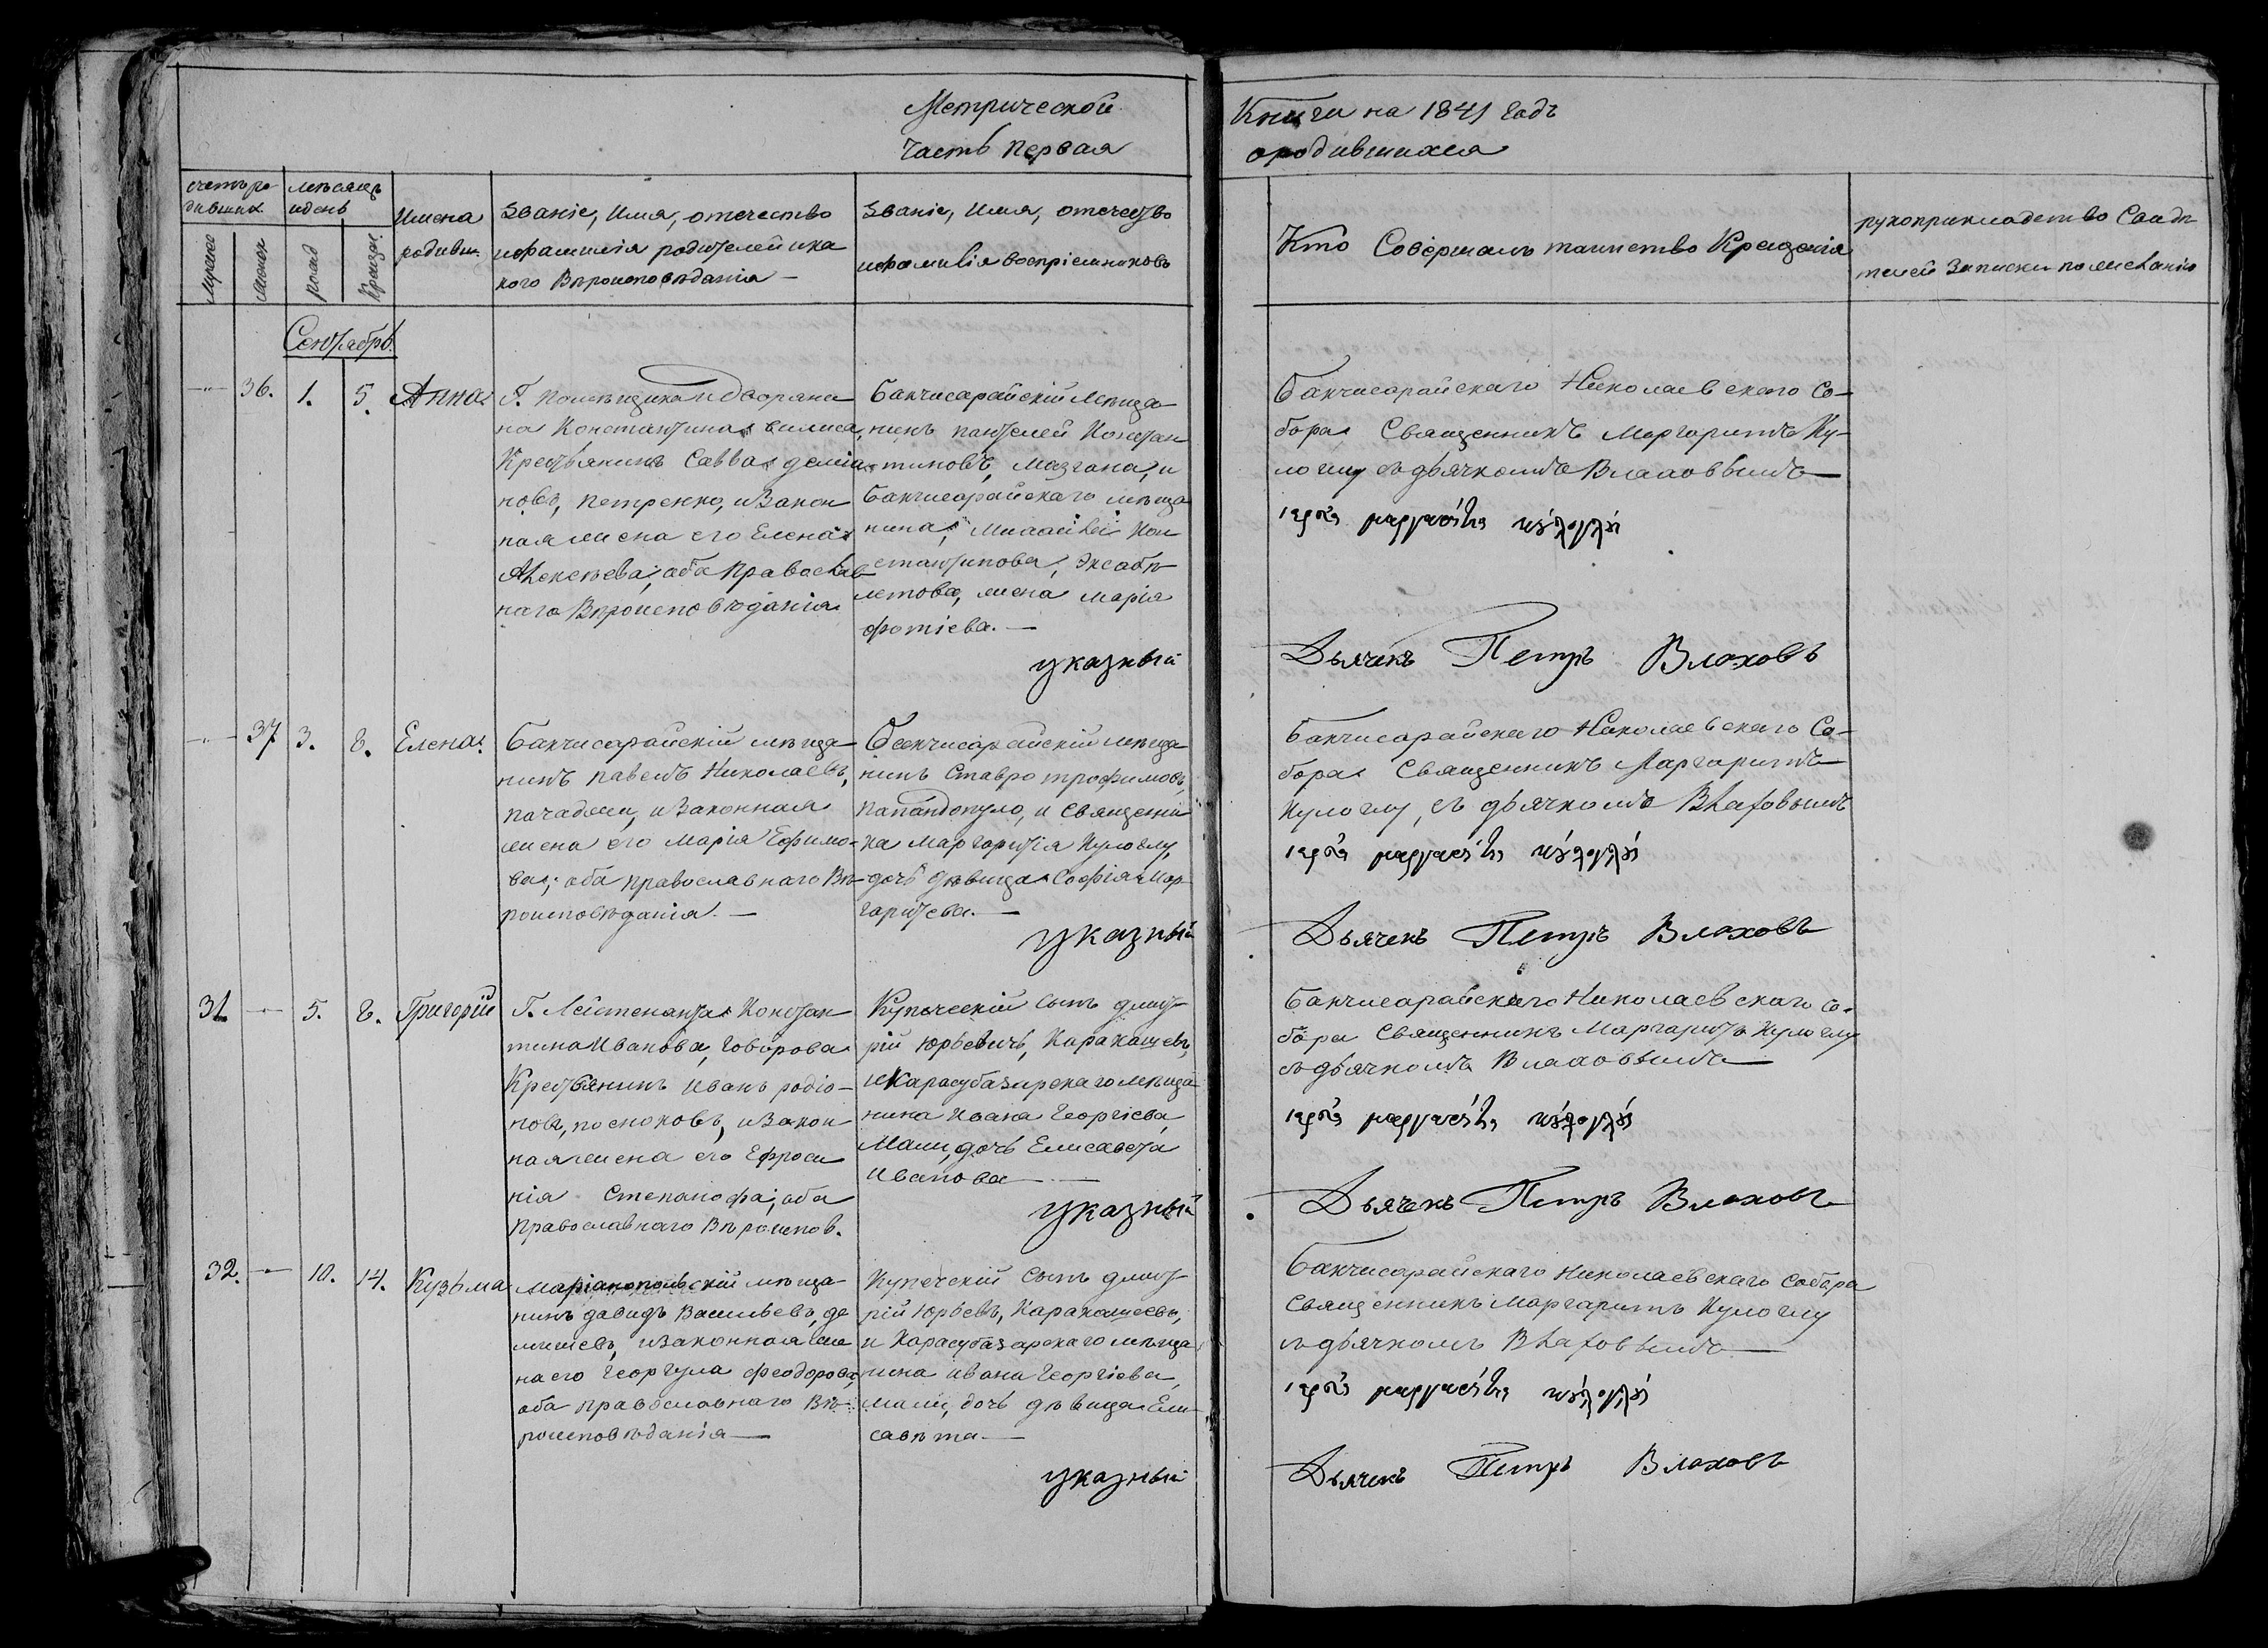 Метрической
Часть первая
Книги на 1841 годъ
о родившихся
счетъ ро-
дивших.
мѣсяцъ
и день
Имена
родивш.
Званіе, Имя, отечество
и фамилія родителей и ка
кого Вѣроисповѣданія —
Званіе, Имя, отечество
и фамилія воспріемниковъ
Кто Совершалъ таинство Крещенія
рукоприкладство Свидѣ
телей Записки по желанію
мужес
женск
рожд
Крещен.
Сентябрь.
36. 1. 5. Анна.
Г. помѣщика и дворяни
на Константина
Крестьянинъ Савва деміа
новъ, петренко, и Закон
ная жена его Елена
Алексѣева; оба Православ
наго Вѣроисповѣданія
Бакчисарайскій Мѣща
нинъ пантелей Констан
тиновъ, Мазгана, и
Бакчисарайскаго мѣща
нина, Кон
стантинова,
жена Марія
фотіева. —
указный
Бакчисарайскаго Николаевскаго Со-
бора Священникъ Маргаритъ Ку-
логлу съ дьячкомъ Влаховымъ —
Дьячекъ Петръ Влаховъ
37 3. 8. Елена.
Бакчисарайскій мѣща
нинъ павелъ Николаевъ,
и Законная
жена его Марія Ефимо-
ва; оба православнаго Вѣ-
роисповѣданія. —
Бакчисарайскій мѣща
нинъ Ставро трофимовъ,
папандопуло, и Священни
ка Маргаритія Кулоглу,
дочь дѣвица Софія Мар
гаритева. —
указный
Бакчисарайскаго Николаевскаго Со-
бора Священникъ Маргаритъ
Кулоглу, съ дьячкомъ Влаховымъ
Дьячекъ Петръ Влаховъ
31 5. 8. Григорій
Г. Лейтенанта Констан
тина Иванова, Говорова
Крестьянинъ Иванъ родіо-
новъ, посноковъ, и Закон
ная жена его Ефроси
нія Степанофа; оба
Православнаго Вѣроиспов.
Купеческій сынъ дмит
рій Юрьевичъ, Каракашевъ,
и Карасубазарскаго мѣща
нина Ивана Георгіева
Мали, дочь Елисавета
Иванова —
указный
Бакчисарайскаго Николаевскаго Со-
бора Священникъ Маргаритъ Кулоглу
съ дьячкомъ Влаховымъ —
Дьячекъ Петръ Влаховъ
32. 10. 14. Кузьма
Маріанопольскій мѣща
нинъ давидъ Васильевъ,
и законная же
на его Георгула Феодорова,
оба православнаго Вѣ
роисповѣданія —
Купечскій сынъ дмит
рій Юрьевъ, Каракашевъ,
и Карасубазарскаго мѣща
нина Ивана Георгіева,
Мали, дочь дѣвица Ели
савѣта. —
указный
Бакчисарайскаго Николаевскаго Собора
Священникъ Маргаритъ Кулоглу
съ дьячкомъ Влаховымъ —
Дьячекъ Петръ Влаховъ